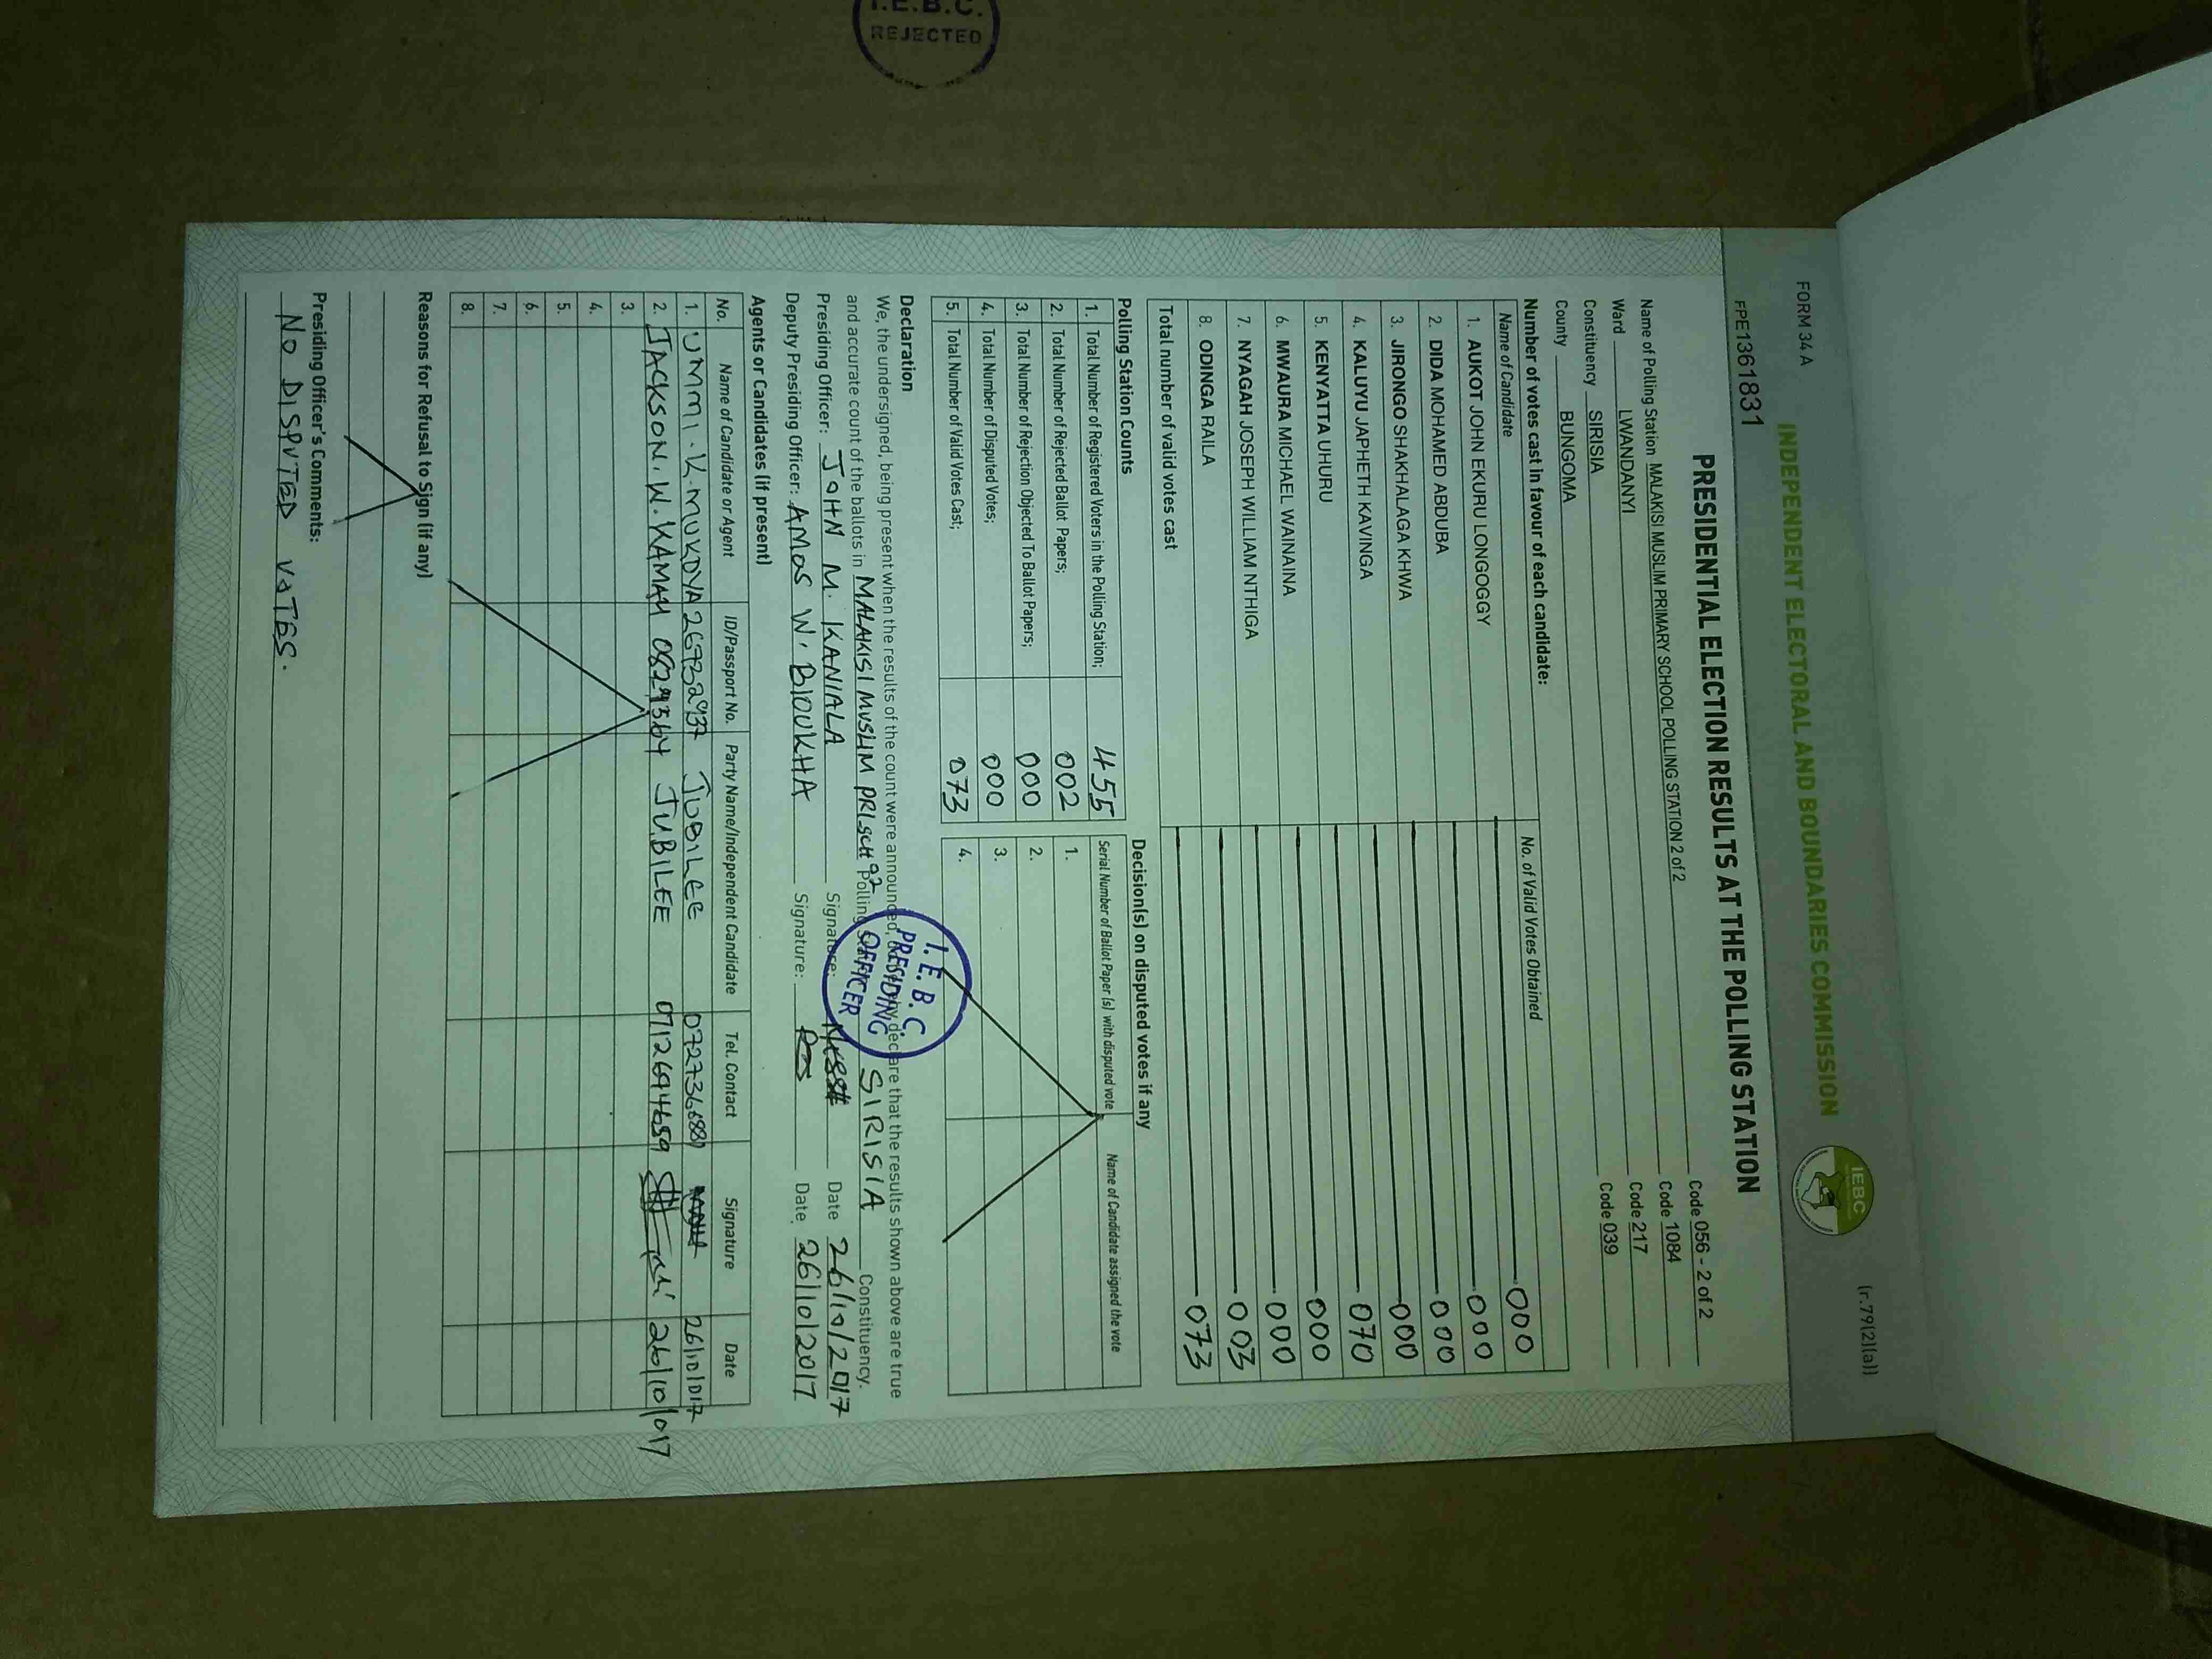 I.E.B.C.
REJECTED
FORM 34 A
(r.79(2)(a))
INDEPENDENT ELECTORAL AND BOUNDARIES COMMISSION
IEBC
FPE1361831
PRESIDENTIAL ELECTION RESULTS AT THE POLLING STATION
Name of Polling Station MALAKISI MUSLIM PRIMARY SCHOOL POLLING STATION 2 of 2 Code 056 - 2 of 2
Ward LWANDANYI Code 1084
Constituency SIRISIA Code 217
County BUNGOMA Code 039
Number of votes cast in favour of each candidate:
Name of Candidate No. of Valid Votes Obtained
1. AUKOT JOHN EKURU LONGOGGY 000
2. DIDA MOHAMED ABDUBA 000
3. JIRONGO SHAKHALAGA KHWA 000
4. KALUYU JAPHETH KAVINGA 000
5. KENYATTA UHURU 070
6. MWAURA MICHAEL WAINAINA 000
7. NYAGAH JOSEPH WILLIAM NTHIGA 000
8. ODINGA RAILA 003
Total number of valid votes cast 073
Polling Station Counts
1. Total Number of Registered Voters in the Polling Station; 455
2. Total Number of Rejected Ballot Papers; 002
3. Total Number of Rejection Objected To Ballot Papers; 000
4. Total Number of Disputed Votes; 000
5. Total Number of Valid Votes Cast; 073
Decision(s) on disputed votes if any
Serial Number of Ballot Paper (s) with disputed vote Name of Candidate assigned the vote
1.
2.
3.
4.
Declaration
We, the undersigned, being present when the results of the count were announced, do hereby declare that the results shown above are true
and accurate count of the ballots in MALAKISI MUSLIM PRI SCH Polling SIRISIA Constituency.
I.E.B.C.
PRESIDING
OFFICER
Presiding Officer: JOHN M. KANIALA Signature: Date 26/10/2017
Deputy Presiding Officer: AMOS W. BIOUKHA Signature: Date 26/10/2017
Agents or Candidates (if present)
No. Name of Candidate or Agent ID/Passport No. Party Name/Independent Candidate Tel. Contact Signature Date
1. UMMI. K. MUKOYA 26732937 JUBILEE 26/10/017
2. JACKSON. W. KAMAU JUBILEE 0712694659 26/10/017
3.
4.
5.
6.
7.
8.
Reasons for Refusal to Sign (if any)
Presiding Officer's Comments:
NO DISPUTED VOTES.